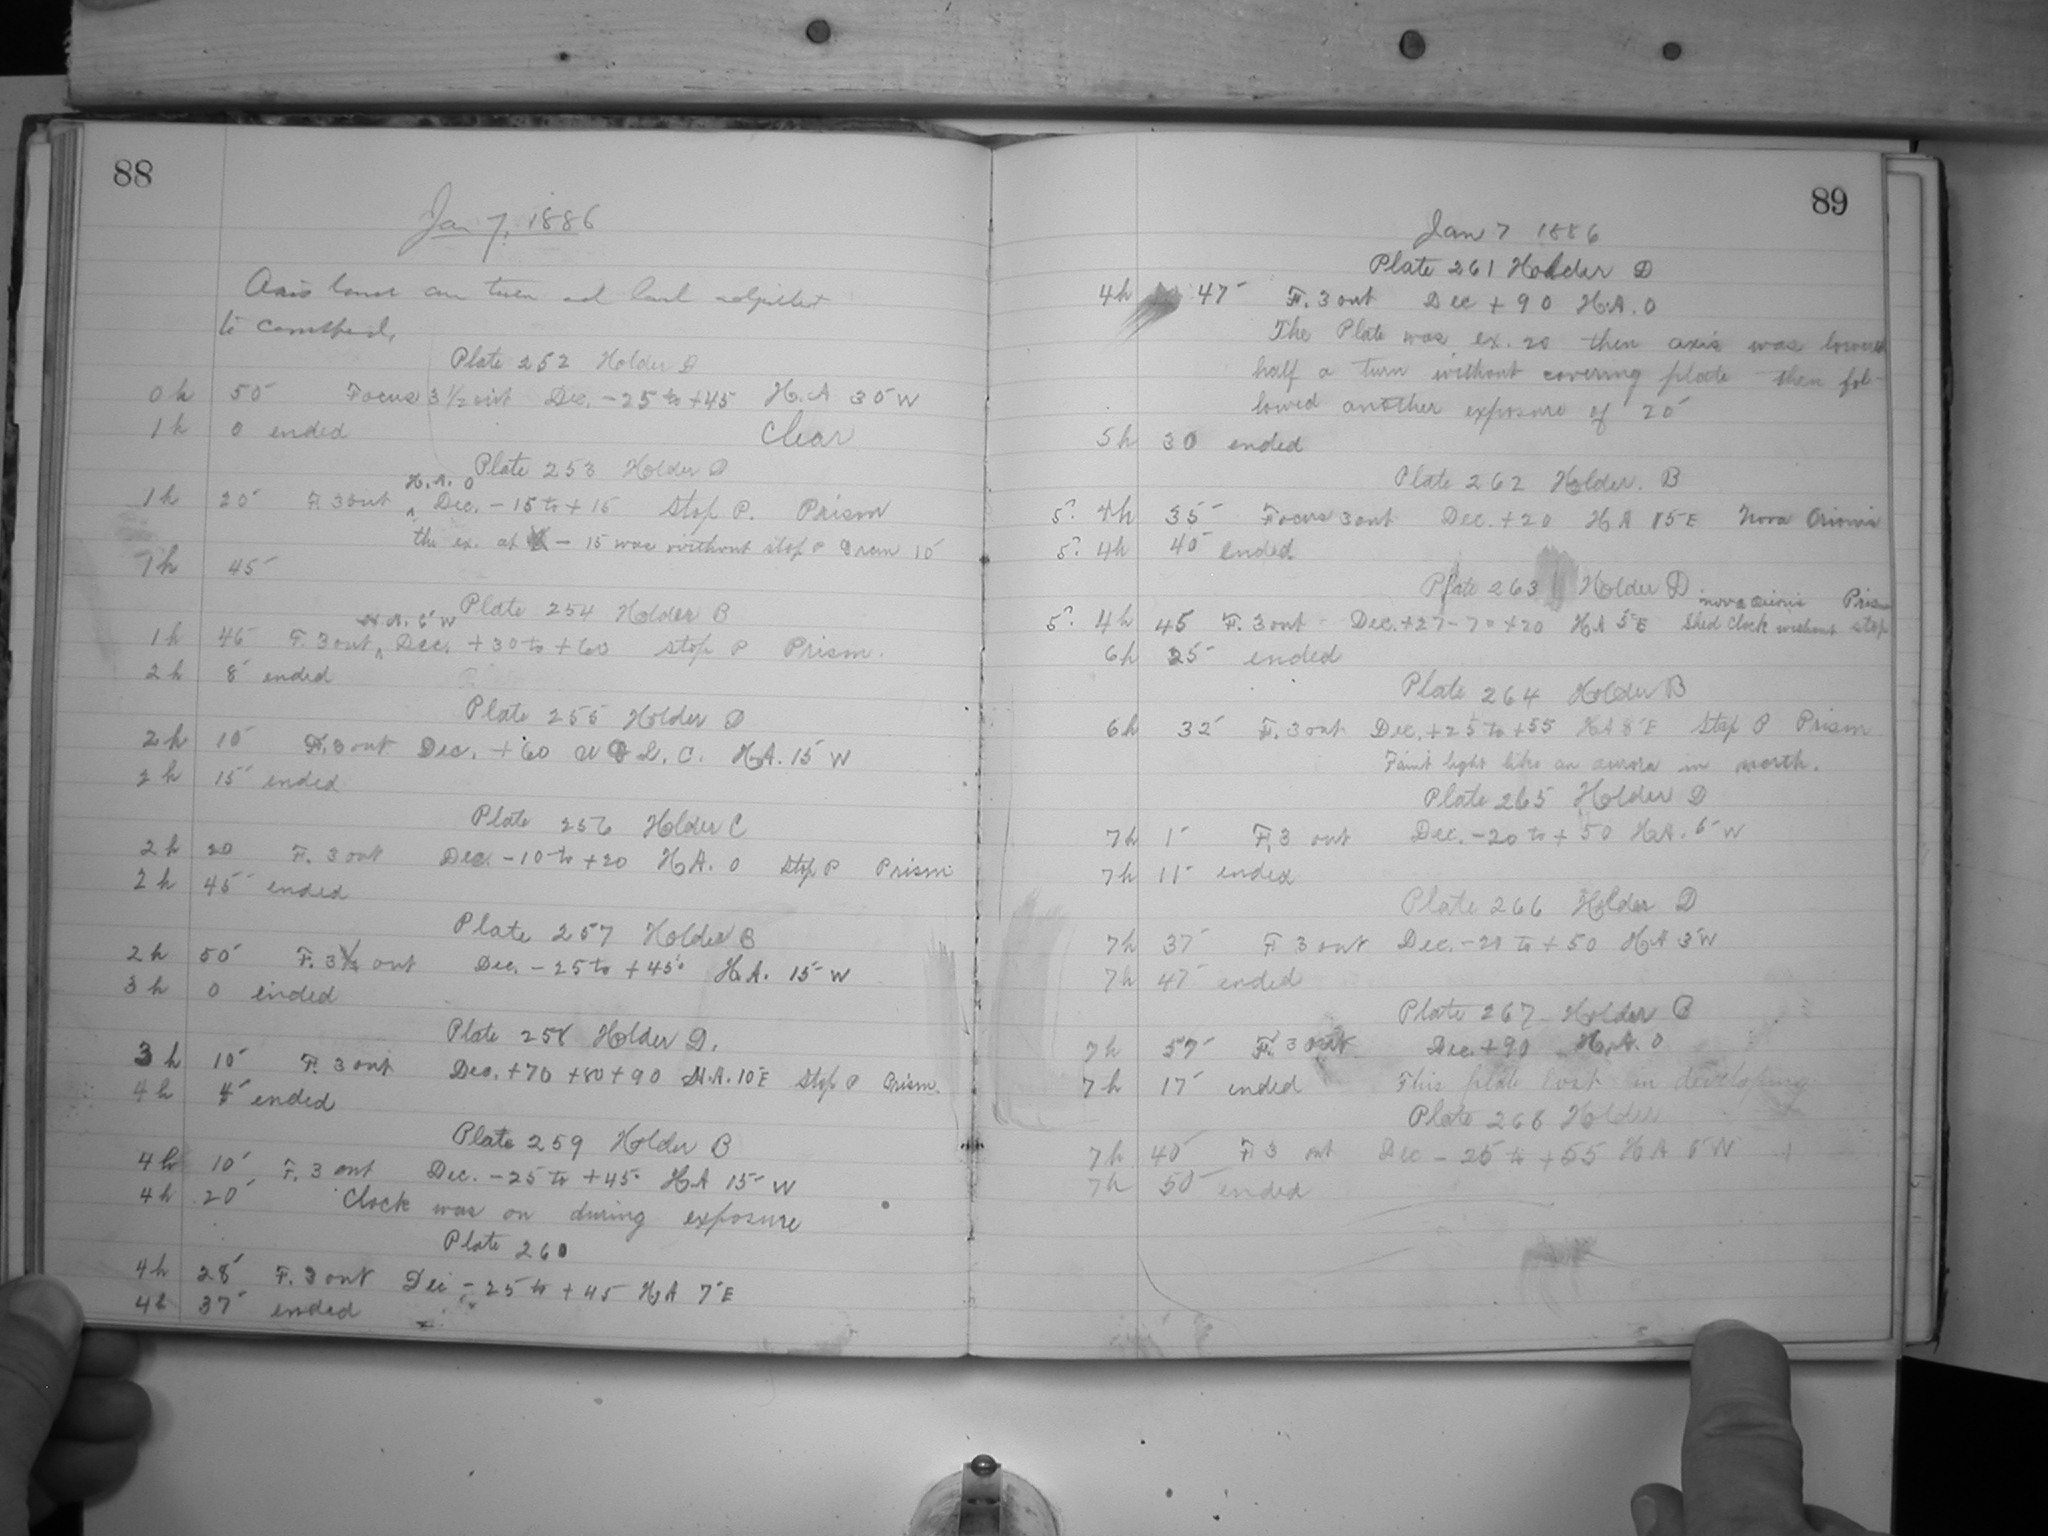 88
Jan 7, 1886
Axis turn and
to
Plate 252 Holder D
0h 50 Focus 3 1/2 out Dec. -25 to +45 H.A 30 W
1h 0 ended Clear
Plate 253 Holder D
H.A. 0
1h 20 F. 3 out Dec. -15 to +15 Stop P. Prism
the ex. at -15 was without stop P 10
1h 45
Plate 254 Holder B
H.A. 5 W
1h 46 F. 3 out Dec. +30 to +60 stop P Prism.
2h 8 ended
Plate 255 Holder D
2h 10 F. 3 out Dec. +60 L. C. H.A. 15 W
2h 15 ended
Plate 256 Holder C
2h 20 F. 3 out Dec. -10 to +20 H.A. 0 Stop P Prism
2h 45 ended
Plate 257 Holder B
2h 50 F. 3 out Dec. -25 to +45 H.A. 15 W
3h 0 ended
Plate 258 Holder D.
3h 10 F. 3 out Dec. +70 +80 +90 H.A. 10 E Stop P Prism.
4h ended
Plate 259 Holder B
4h 10 F. 3 out Dec. -25 to +45 H.A 15 W
4h 20 Clock was on during exposure
Plate 260
4h 28 F. 3 out Dec -25 to +45 H A 7 E
4h 37 ended
89
Jan 7 1886
Plate 261 Holder D
4h 47 F. 3 out Dec +90 H.A. 0
The Plate was ex. 20 then axis was lowered
half a turn without covering plate then fol-
lowed another exposure of 20
5h 30 ended
Plate 262 Holder. B
5? 4h 35 Focus 3 out Dec. +20 H A 15 E Nova Orionis
5? 4h 40 ended.
Plate 263 Holder D
nova orionis Prism
5? 4h 45 F. 3 out Dec. +27 - +20 H A 5 E Sked Clock without stop
6h 25 ended
Plate 264 Holder B
6h 32 F. 3 out Dec. +25 to +55 H A 8 E Stop P Prism
Faint light like an aurora in north.
Plate 265 Holder D
7h 1 F. 3 out Dec. -20 to +50 H.A. 5 W
7h 11 ended
Plate 266 Holder D
7h 37 F 3 out Dec. -20 to +50 H A 3 W
7h 47 ended
Plate 267 Holder C
7h 57 F. 3 out Dec. +90 H.A. 0
7h 17 ended This plate lost in developing
Plate 268 Holder
7h 40 F 3 out Dec -25 to +55 H A W
7h 50 ended